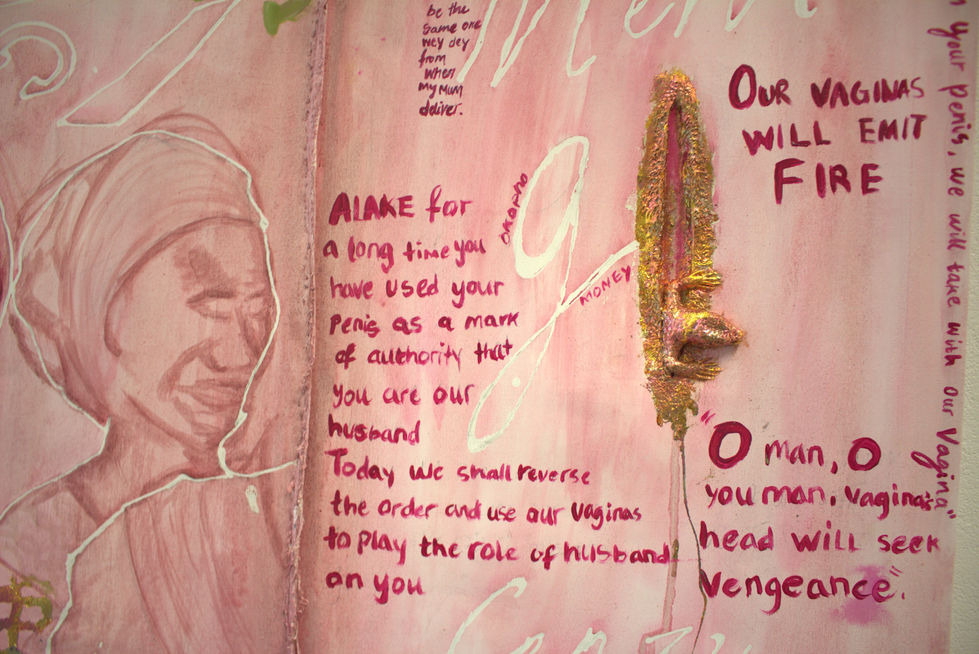 be the
same one
wey dey
from
when
my mum
deliver.
OUR VAGINAS
WILL EMIT
FIRE
ALAKE for
a long time you
have used your
Penis as a mark
of authority that
you are our
husband
Today we shall reverse
the order and use our vaginas
to play the role of husband
on you
MONEY
"O man, O
you man, vagina's
head will seek
vengeance".
your penis, we will take with our vagina"